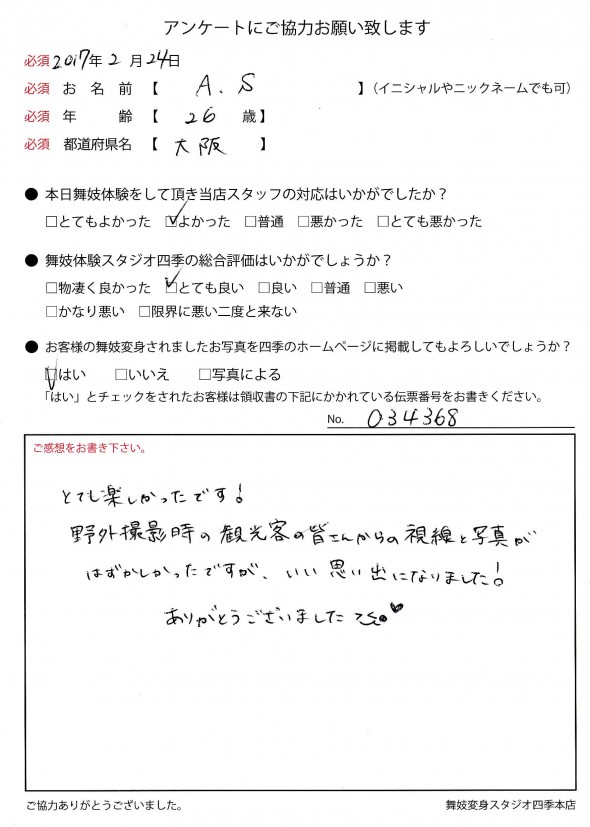 アンケートにご協力お願い致します
必須 2017年 2 月 24日
必須 お 名 前 【 A.S 】（イニシャルやニックネームでも可）
必須 年 齢 【 26 歳】
必須 都道府県名 【 大阪 】
● 本日舞妓体験をして頂き当店スタッフの対応はいかがでしたか？
□とてもよかった ☑よかった □普通 □悪かった □とても悪かった
● 舞妓体験スタジオ四季の総合評価はいかがでしょうか？
□物凄く良かった ☑とても良い □良い □普通 □悪い
□かなり悪い □限界に悪い二度と来ない
● お客様の舞妓変身されましたお写真を四季のホームページに掲載してもよろしいでしょうか？
☑はい □いいえ □写真による
「はい」とチェックをされたお客様は領収書の下記にかかれている伝票番号をお書きください。
No. 034368
ご感想をお書き下さい。
とても楽しかったです！
野外撮影時の観光客の皆さんからの視線と写真が
はずかしかったですが、いい思い出になりました！
ありがとうございました
ご協力ありがとうございました。
舞妓変身スタジオ四季本店